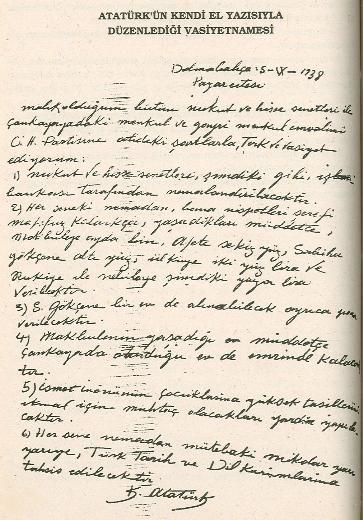 ATATÜRK'ÜN KENDİ EL YAZISIYLA
DÜZENLEDİĞİ VASİYETNAMESİ
Dolmabahçe: 5-IX-1938
Pazartesi
malik olduğum bütün nukut ve hisse senetleri ile
Çankayadaki menkul ve gayri menkul emvalimi
C.H. Partisine atideki şartlarla, terk ve vasiyet
ediyorum:
1) nukut ve hisse senetleri, şimdiki gibi, iş
bankası tarafından nemalandırılacaktır.
2) Her seneki nemadan, bana nispetleri şerefi
mahfuz kaldıkça, yaşadıkları müddetçe,
Makbuleye ayda bin, Afete sekiz yüz, Sabiha
Gökçene altı yüz, Ülküye iki yüz lira ve
Rukiye ile Nebileye şimdiki yüzer lira
verilecektir.
3) S. Gökçene bir ev de alınabilecek ayrıca para
verilecektir.
4) Makbulenin yaşadığı müddetçe
Çankayada oturduğu ev de emrinde kalacak
tır.
5) İsmet İnönünün çocuklarına yüksek tahsillerini
ikmal için muhtaç olacakları yardım yapıla
caktır.
6) Her sene nemadan mütebaki miktar yarı
yarıya, Türk Tarih ve Dil Kurumlarına
tahsis edilecektir
K. Atatürk